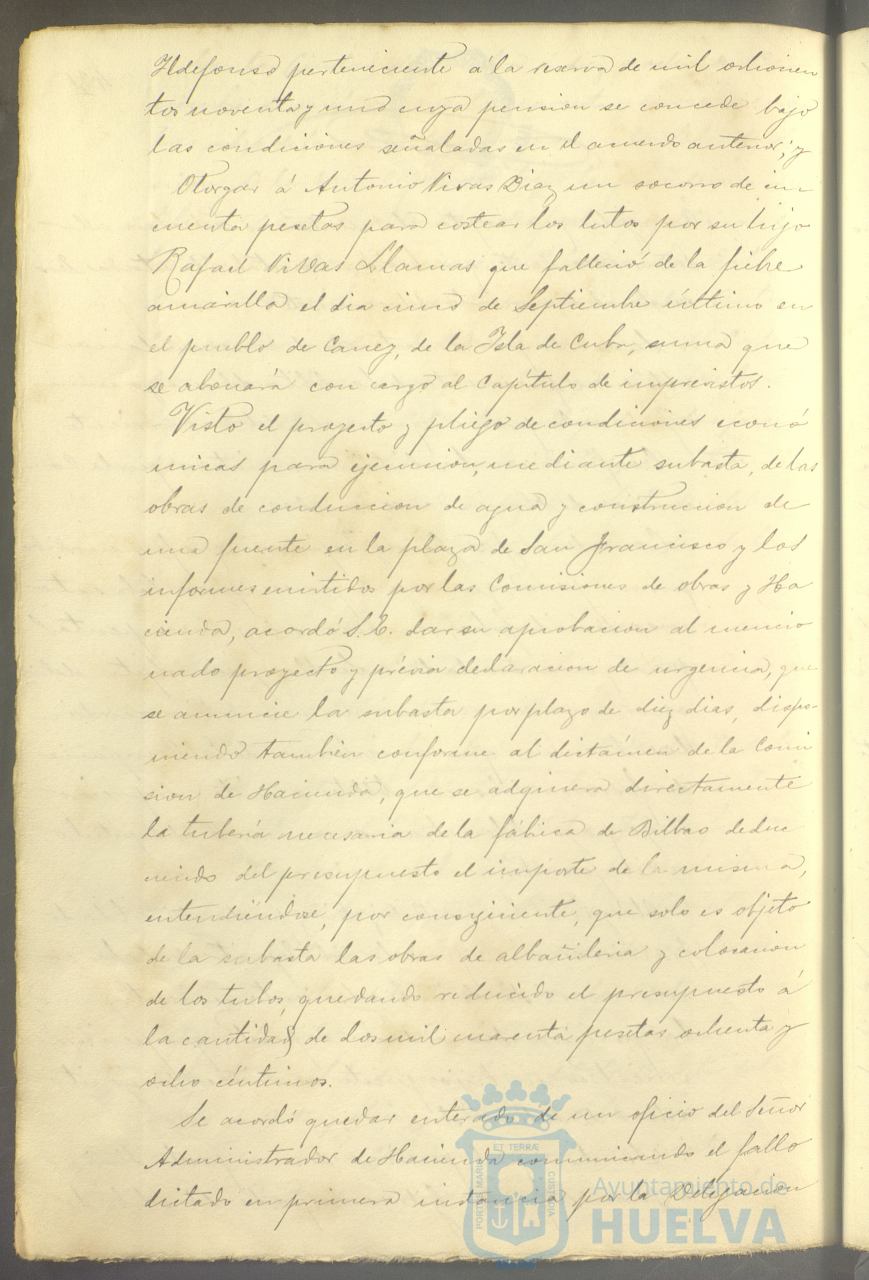 Ildefonso perteneciente á la reserva de mil ochocien
tos noventa y uno cuya pension se concede bajo
las condiciones señaladas en el acuerdo anterior; y
Otorgar á Antonio Vivas Diaz un socorro de cin-
cuenta pesetas para costear los lutos por su hijo
Rafael Vivas Llamas que falleció de la fiebre
amarilla el dia cinco de Septiembre último en
el pueblo de Caney, de la Isla de Cuba, suma que
se abonará con cargo al Capítulo de imprevistos.
Visto el proyecto y pliego de condiciones econó
micas para ejecucion, mediante subasta, de las
obras de conduccion de agua y construccion de
una fuente en la plaza de San Francisco y los
informes emitidos por las Comisiones de obras y Ha
cienda, acordó S. E. dar su aprobacion al mencio
nado proyecto y prévia declaracion de urgencia, que
se anuncie la subasta por plazo de diez dias, dispo-
niendo tambien conforme al dictámen de la Comi
sion de Hacienda, que se adquiera directamente
la tubería necesaria de la fábrica de Bilbao dedu
ciendo del presupuesto el importe de la misma,
entendiéndose, por consiguiente, que solo es objeto
de la subasta las obras de albañileria y colocacion
de los tubos, quedando reducido el presupuesto á
la cantidad de dos mil cuarenta pesetas ochenta y
ocho céntimos.
Se acordó quedar enterado de un oficio del Señor
Administrador de Hacienda comunicando el fallo
dictado en primera instancia por la Delegacion
PORTUS MARIS ET TERRÆ CUSTODIA
Ayuntamiento de
HUELVA